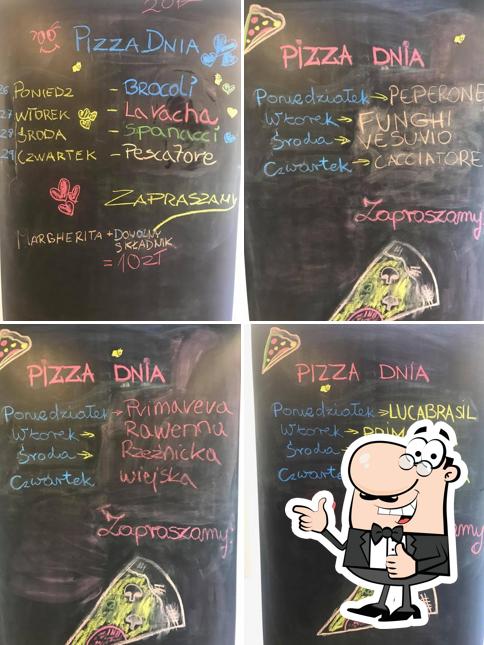 PIZZA DNIA
26 PONIEDZ - BROCOLI
27 WTOREK - LA VACHA
28 ŚRODA - SPANACCI
29 CZWARTEK - PESCATORE
ZAPRASZAMY
MARGHERITA + DOWOLNY
SKŁADNIK
= 10ZŁ
PIZZA DNIA
Poniedziałek → PEPERONE
Wtorek → FUNGHI
Środa → VESUVIO
Czwartek → CACCIATORE
Zapraszamy
PIZZA DNIA
Poniedziałek → Primavera
Wtorek → Rawenna
Środa → Rzeźnicka
Czwartek wiejska
Zapraszamy!
PIZZA DNIA
Poniedziałek → LUCABRASIL
Wtorek →
Środa